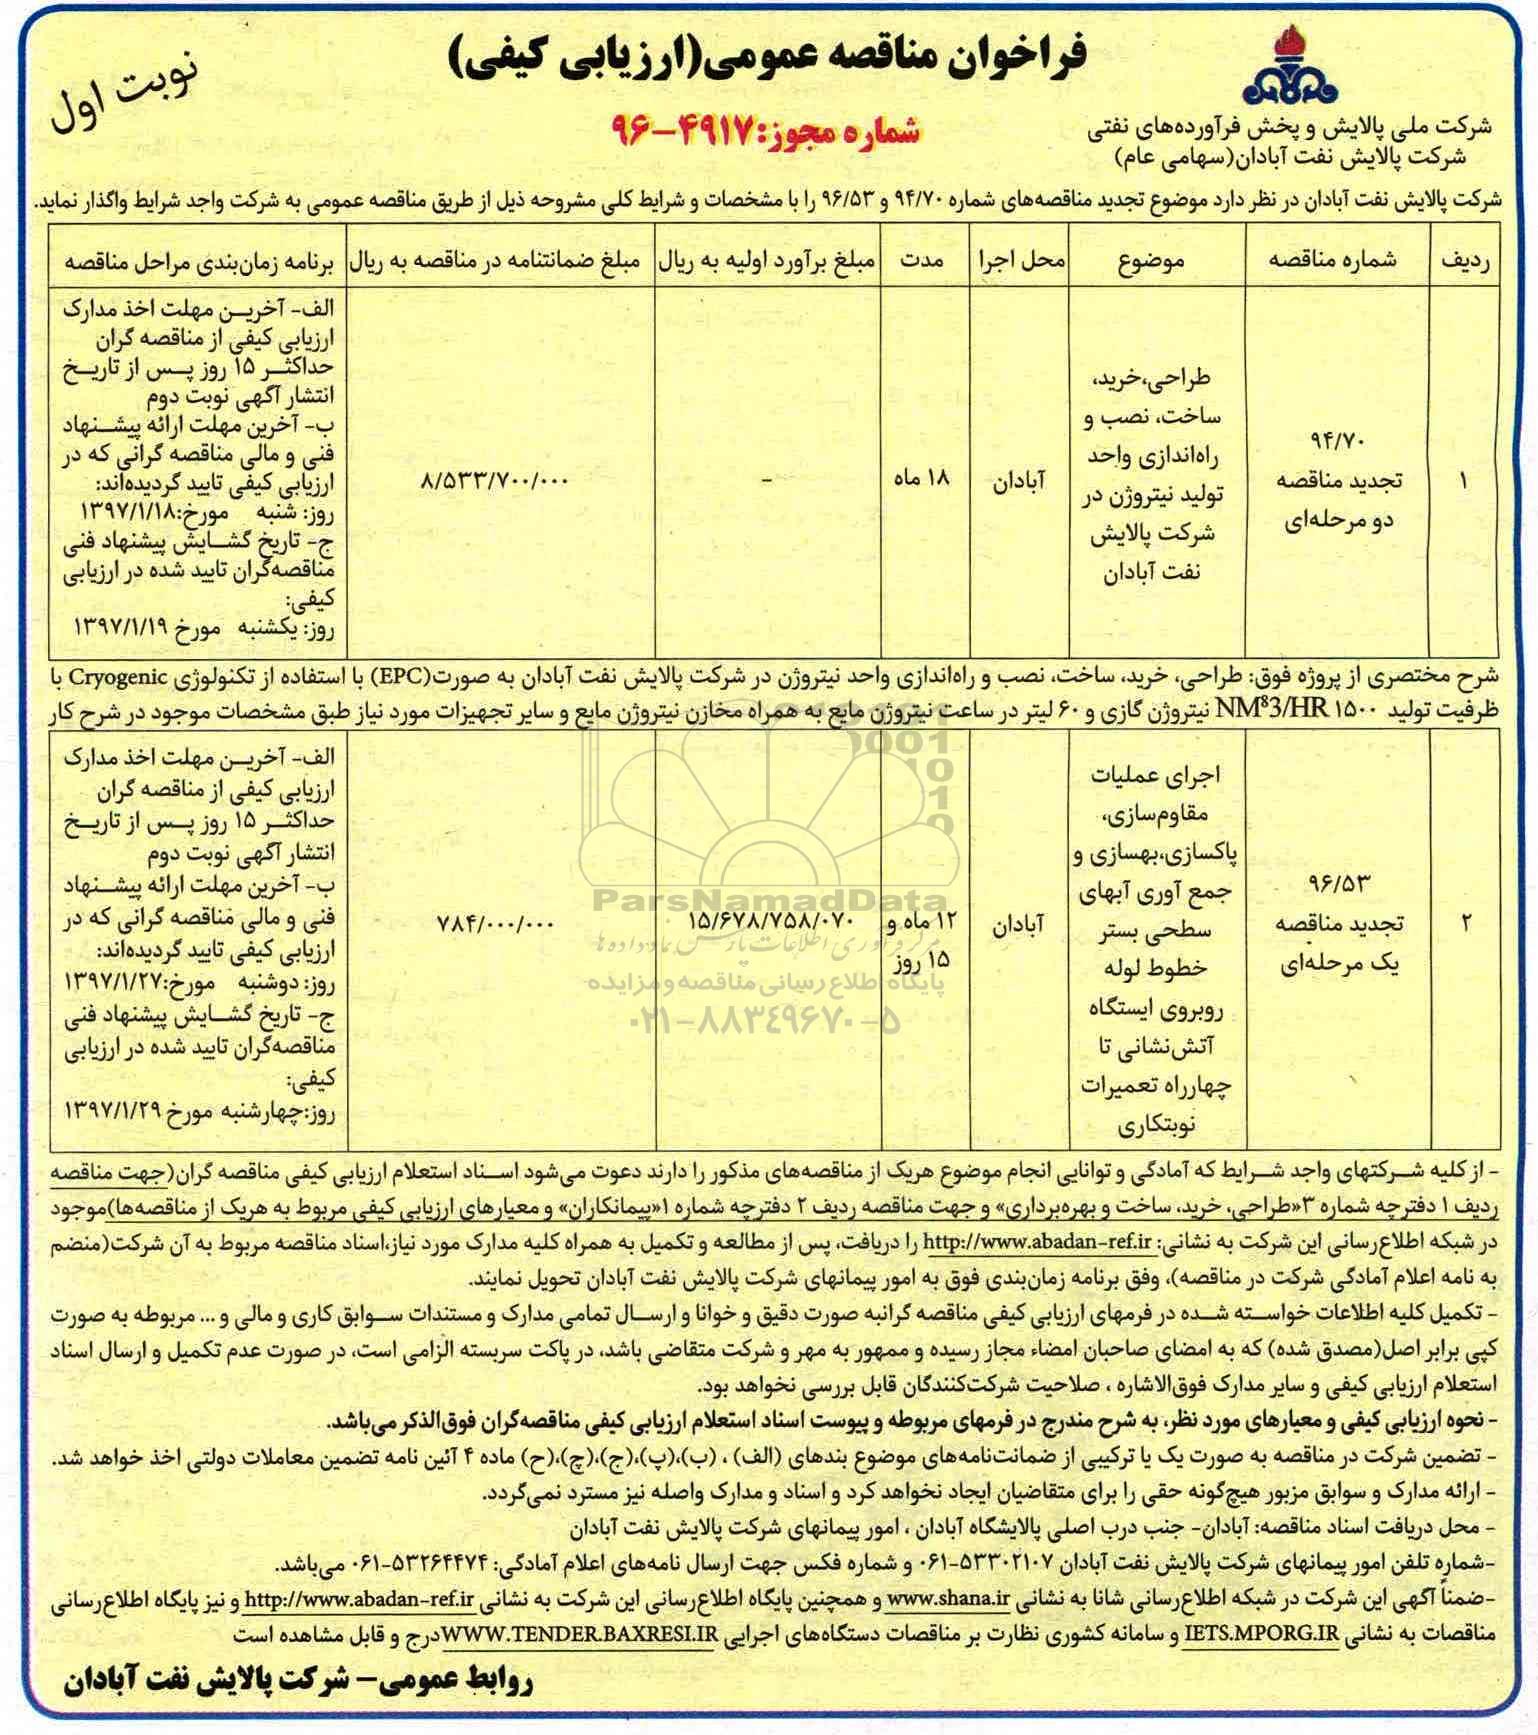 فراخوان مناقصه عمومی(ارزیابی کیفی)
نوبت اول
شماره مجوز:۴۹۱۷-۹۶
شرکت ملی پالایش و پخش فرآورده‌های نفتی
شرکت پالایش نفت آبادان(سهامی عام)
شرکت پالایش نفت آبادان در نظر دارد موضوع تجدید مناقصه‌های شماره ۹۴/۷۰ و ۹۶/۵۳ را با مشخصات و شرایط کلی مشروحه ذیل از طریق مناقصه عمومی به شرکت واجد شرایط واگذار نماید.
ردیف شماره مناقصه موضوع محل اجرا مدت مبلغ برآورد اولیه به ریال مبلغ ضمانتنامه در مناقصه به ریال برنامه زمان‌بندی مراحل مناقصه
۱
۹۴/۷۰
تجدید مناقصه
دو مرحله‌ای
طراحی،خرید،
ساخت، نصب و
راه‌اندازی واحد
تولید نیتروژن در
شرکت پالایش
نفت آبادان
آبادان
۱۸ ماه
-
۸/۵۳۳/۷۰۰/۰۰۰
الف- آخرین مهلت اخذ مدارک
ارزیابی کیفی از مناقصه گران
حداکثر ۱۵ روز پس از تاریخ
انتشار آگهی نوبت دوم
ب- آخرین مهلت ارائه پیشنهاد
فنی و مالی مناقصه گرانی که در
ارزیابی کیفی تایید گردیده‌اند:
روز: شنبه مورخ:۱۳۹۷/۱/۱۸
ج- تاریخ گشایش پیشنهاد فنی
مناقصه‌گران تایید شده در ارزیابی
کیفی:
روز: یکشنبه مورخ ۱۳۹۷/۱/۱۹
شرح مختصری از پروژه فوق: طراحی، خرید، ساخت، نصب و راه‌اندازی واحد نیتروژن در شرکت پالایش نفت آبادان به صورت(EPC) با استفاده از تکنولوژی Cryogenic با
ظرفیت تولید ۱۵۰۰ NM⁸3/HR نیتروژن گازی و ۶۰ لیتر در ساعت نیتروژن مایع به همراه مخازن نیتروژن مایع و سایر تجهیزات مورد نیاز طبق مشخصات موجود در شرح کار
۲
۹۶/۵۳
تجدید مناقصه
یک مرحله‌ای
اجرای عملیات
مقاوم‌سازی،
پاکسازی،بهسازی و
جمع آوری آبهای
سطحی بستر
خطوط لوله
روبروی ایستگاه
آتش‌نشانی تا
چهارراه تعمیرات
نوبتکاری
آبادان
۱۲ ماه و
۱۵ روز
۱۵/۶۷۸/۷۵۸/۰۷۰
۷۸۴/۰۰۰/۰۰۰
الف- آخرین مهلت اخذ مدارک
ارزیابی کیفی از مناقصه گران
حداکثر ۱۵ روز پس از تاریخ
انتشار آگهی نوبت دوم
ب- آخرین مهلت ارائه پیشنهاد
فنی و مالی مناقصه گرانی که در
ارزیابی کیفی تایید گردیده‌اند:
روز: دوشنبه مورخ:۱۳۹۷/۱/۲۷
ج- تاریخ گشایش پیشنهاد فنی
مناقصه‌گران تایید شده در ارزیابی
کیفی:
روز:چهارشنبه مورخ ۱۳۹۷/۱/۲۹
ParsNamadData
مرکز فرآوری اطلاعات پارس نماد داده‌ها
پایگاه اطلاع رسانی مناقصه و مزایده
۰۲۱-۸۸۳۴۹۶۷۰-۵
- از کلیه شرکتهای واجد شرایط که آمادگی و توانایی انجام موضوع هریک از مناقصه‌های مذکور را دارند دعوت می‌شود اسناد استعلام ارزیابی کیفی مناقصه گران(جهت مناقصه
ردیف ۱ دفترچه شماره ۳«طراحی، خرید، ساخت و بهره‌برداری» و جهت مناقصه ردیف ۲ دفترچه شماره ۱«پیمانکاران» و معیارهای ارزیابی کیفی مربوط به هریک از مناقصه‌ها)موجود
در شبکه اطلاع‌رسانی این شرکت به نشانی: http://www.abadan-ref.ir را دریافت، پس از مطالعه و تکمیل به همراه کلیه مدارک مورد نیاز،اسناد مناقصه مربوط به آن شرکت(منضم
به نامه اعلام آمادگی شرکت در مناقصه)، وفق برنامه زمان‌بندی فوق به امور پیمانهای شرکت پالایش نفت آبادان تحویل نمایند.
- تکمیل کلیه اطلاعات خواسته شده در فرمهای ارزیابی کیفی مناقصه گرانبه صورت دقیق و خوانا و ارسال تمامی مدارک و مستندات سوابق کاری و مالی و ... مربوطه به صورت
کپی برابر اصل(مصدق شده) که به امضای صاحبان امضاء مجاز رسیده و ممهور به مهر و شرکت متقاضی باشد، در پاکت سربسته الزامی است، در صورت عدم تکمیل و ارسال اسناد
استعلام ارزیابی کیفی و سایر مدارک فوق‌الاشاره ، صلاحیت شرکت‌کنندگان قابل بررسی نخواهد بود.
- نحوه ارزیابی کیفی و معیارهای مورد نظر، به شرح مندرج در فرمهای مربوطه و پیوست اسناد استعلام ارزیابی کیفی مناقصه‌گران فوق‌الذکر می‌باشد.
- تضمین شرکت در مناقصه به صورت یک یا ترکیبی از ضمانت‌نامه‌های موضوع بندهای (الف) ، (ب)،(پ)،(ج)،(چ)،(ح) ماده ۴ آئین نامه تضمین معاملات دولتی اخذ خواهد شد.
- ارائه مدارک و سوابق مزبور هیچ‌گونه حقی را برای متقاضیان ایجاد نخواهد کرد و اسناد و مدارک واصله نیز مسترد نمی‌گردد.
- محل دریافت اسناد مناقصه: آبادان- جنب درب اصلی پالایشگاه آبادان ، امور پیمانهای شرکت پالایش نفت آبادان
-شماره تلفن امور پیمانهای شرکت پالایش نفت آبادان ۵۳۳۰۲۱۰۷-۰۶۱ و شماره فکس جهت ارسال نامه‌های اعلام آمادگی: ۵۳۲۶۴۴۷۴-۰۶۱ می‌باشد.
-ضمناً آگهی این شرکت در شبکه اطلاع‌رسانی شانا به نشانی www.shana.ir و همچنین پایگاه اطلاع‌رسانی این شرکت به نشانی http://www.abadan-ref.ir و نیز پایگاه اطلاع‌رسانی
مناقصات به نشانی IETS.MPORG.IR و سامانه کشوری نظارت بر مناقصات دستگاه‌های اجرایی WWW.TENDER.BAXRESI.IRدرج و قابل مشاهده است
روابط عمومی- شرکت پالایش نفت آبادان